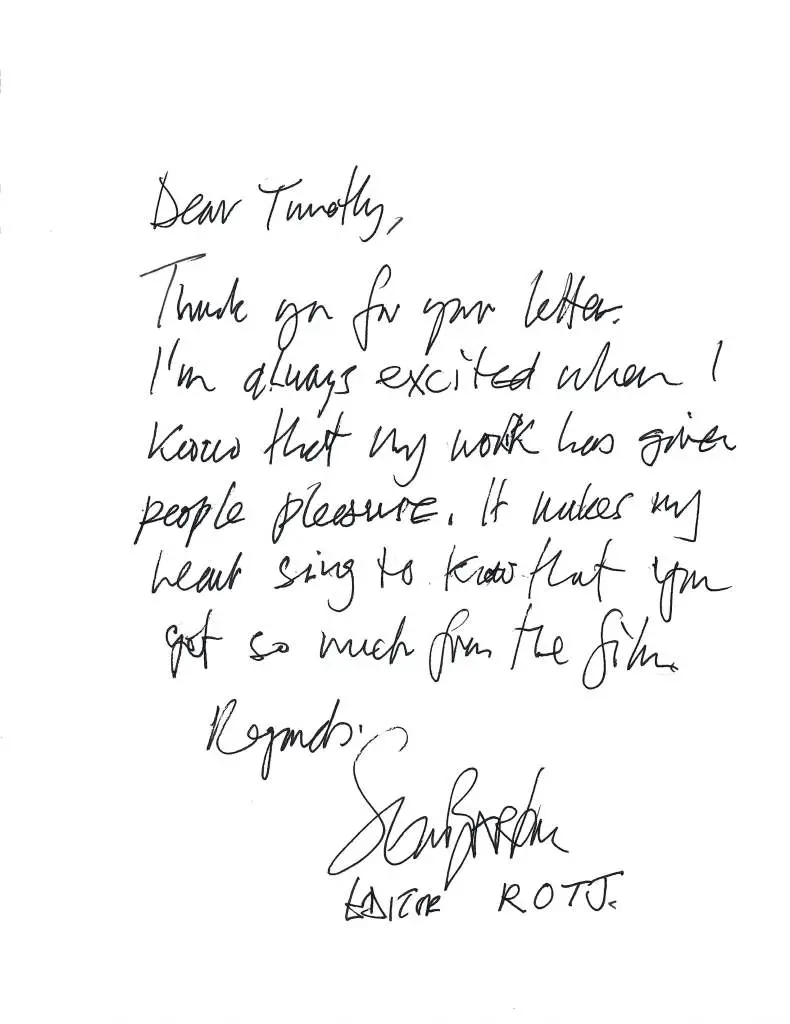 Dear Timothy,
Thank you for your letter.
I'm always excited when I
know that my work has given
people pleasure. It makes my
heart sing to know that you
got so much from the film.
Regards.
Sean Barton
EDITOR ROTJ.